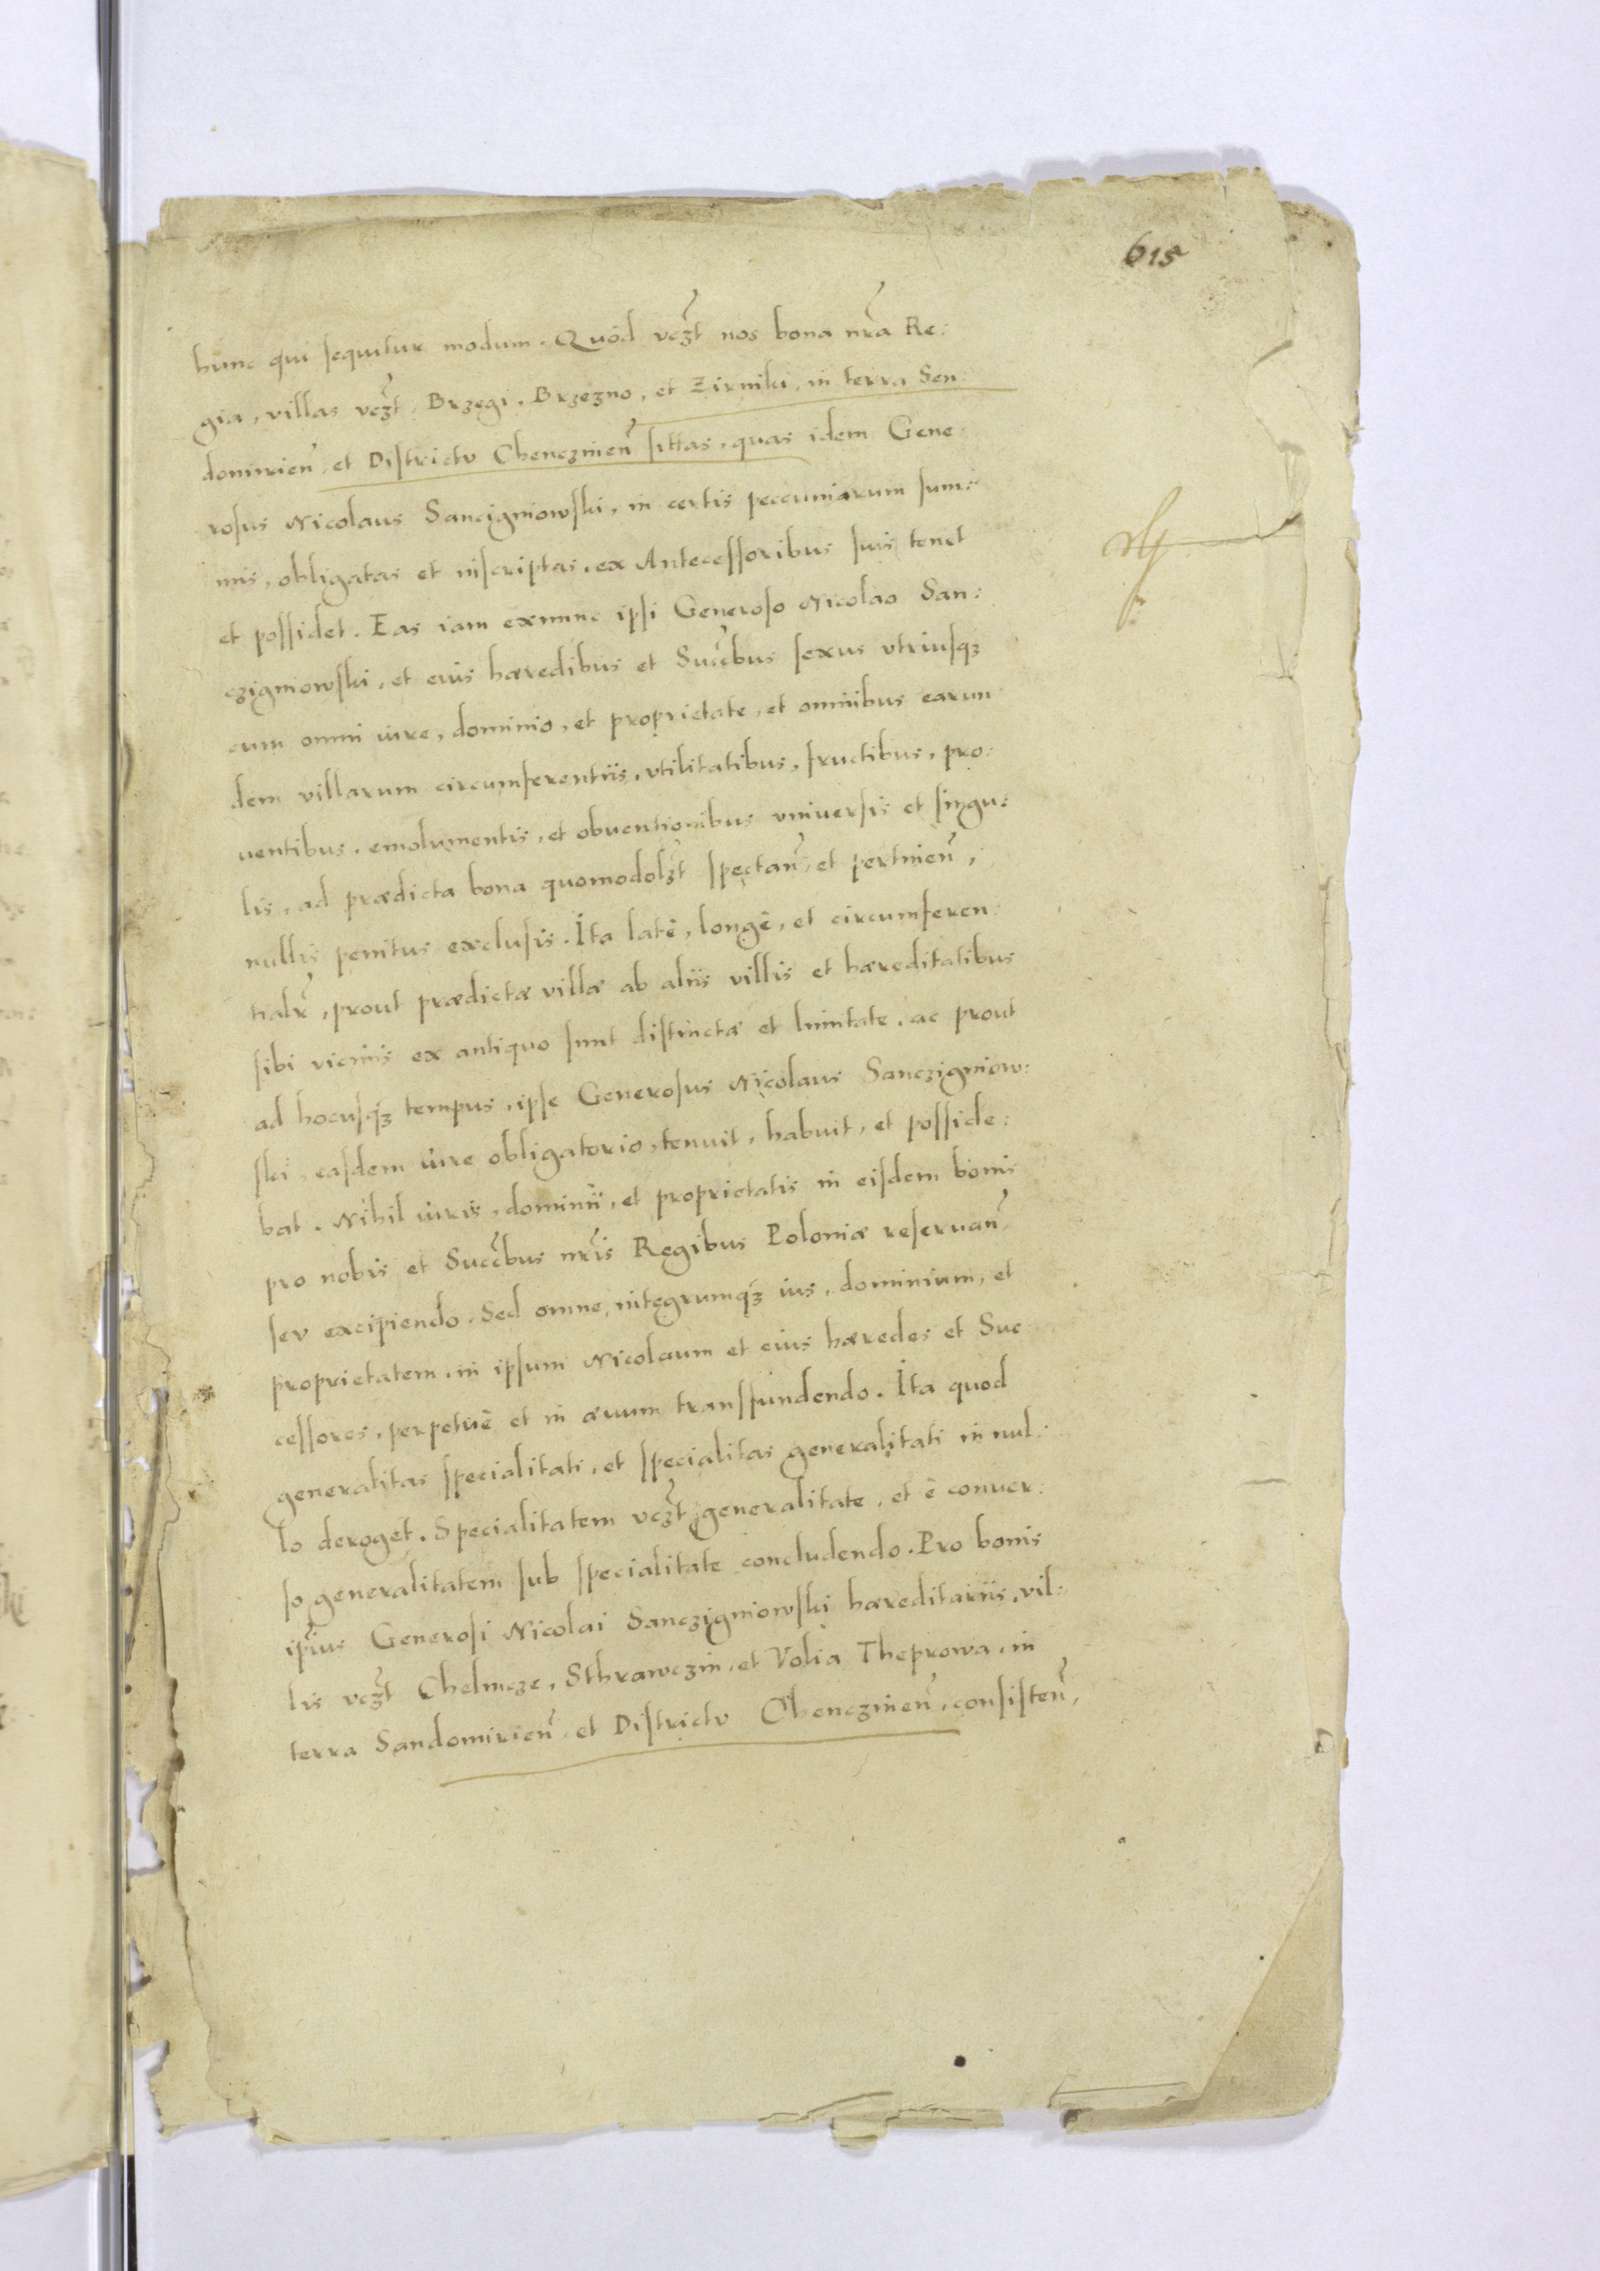 615
hunc qui sequitur modum. Quòd vczt nos bona nra Re:
gia, villas vczt, Brzegi, Brzezno, et Zirniki, in terra Sen:
domirien, et Districtu Chenczinien sittas, quas idem Gene:
rosus Nicolaus Sancigniowski, in certis peccuniarum sum:
mis, obligatas et inscriptas, ex Antecessoribus suis tenet
et possidet. Eas iam exnunc ipsi Generoso Nicolao San:
czigniowski, et eius hæredibus et Succbus sexus vtriusqz
cum omni iure, dominio, et proprietate, et omnibus earun
dem villarum circumferentiis, vtilitatibus, fructibus, pro:
uentibus, emolumentis, et obuentionibus vniuersis et singu:
lis, ad prædicta bona quomodolzt spectan, et pertinen,
nullis penitus exclusis. Ita latè, longè, et circumferen:
tialr, prout prædictæ villæ ab aliis villis et hæreditatibus
sibi vicinis ex antiquo sunt distinctæ et limitatæ, ac prout
ad hocusqz tempus, ipse Generosus Nicolaus Sanczigniow:
ski, easdem iure obligatorio, tenuit, habuit, et posside:
bat. Nihil iuris, dominii, et proprietatis in eisdem bonis
pro nobis et Succbus nris Regibus Poloniæ reseruan,
seu excipiendo. Sed omne, integrumqz ius, dominium, et
proprietatem, in ipsum Nicolaum et eius hæredes et Suc
cessores, perpetuè et in æuum transfundendo. Ita quod
generalitas specialitati, et specialitas generalitati in nul:
lo deroget. Specialitatem vczt generalitate, et è conuer:
so generalitatem sub specialitate concludendo. Pro bonis
ipius Generosi Nicolai Sanczigniowski hæreditariis, vil:
lis vczt Chelmcze, Sthrawczin, et Volia Theprowa, in
terra Sandomirien, et Districtu Chenczinien, consisten,